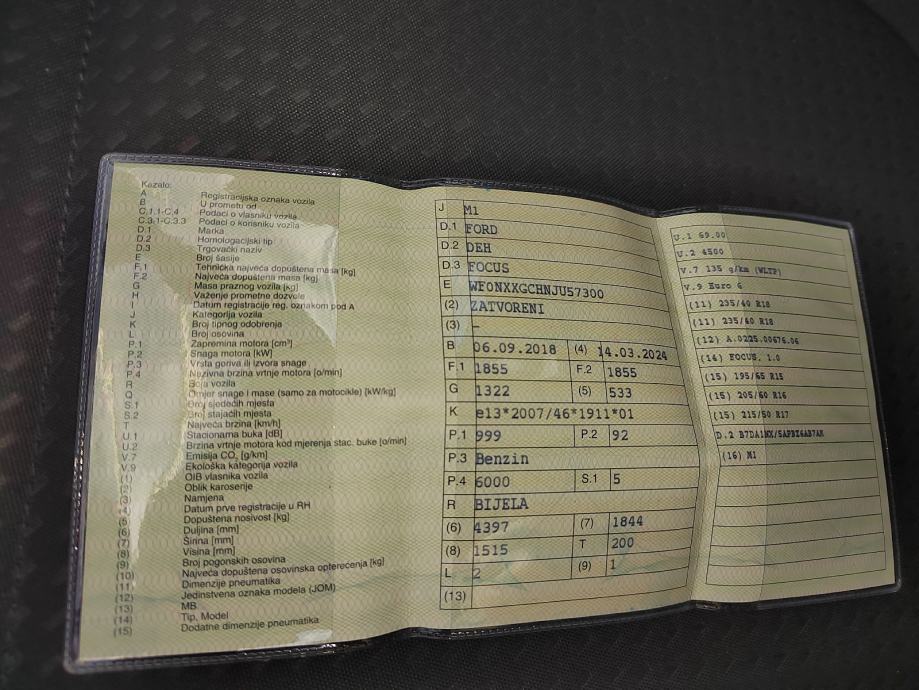 Kazalo:
A Registracijska oznaka vozila
B U prometu od
C.1.1-C.4 Podaci o vlasniku vozila
C.3.1-C.3.3 Podaci o korisniku vozila
D.1 Marka
D.2 Homologacijski tip
D.3 Trgovački naziv
E Broj šasije
F.1 Tehnička najveća dopuštena masa [kg]
F.2 Najveća dopuštena masa [kg]
G Masa praznog vozila [kg]
H Važenje prometne dozvole
I Datum registracije reg. oznakom pod A
J Kategorija vozila
K Broj tipnog odobrenja
L Broj osovina
P.1 Zapremina motora [cm³]
P.2 Snaga motora [kW]
P.3 Vrsta goriva ili izvora snage
P.4 Nazivna brzina vrtnje motora [o/min]
R Boja vozila
Q Omjer snage i mase (samo za motocikle) [kW/kg]
S.1 Broj sjedećih mjesta
S.2 Broj stajaćih mjesta
T Najveća brzina [km/h]
U.1 Stacionarna buka [dB]
U.2 Brzina vrtnje motora kod mjerenja stac. buke [o/min]
V.7 Emisija CO₂ [g/km]
V.9 Ekološka kategorija vozila
(1) OIB vlasnika vozila
(2) Oblik karoserije
(3) Namjena
(4) Datum prve registracije u RH
(5) Dopuštena nosivost [kg]
(6) Duljina [mm]
(7) Širina [mm]
(8) Visina [mm]
(9) Broj pogonskih osovina
(10) Najveća dopuštena osovinska opterećenja [kg]
(11) Dimenzije pneumatika
(12) Jedinstvena oznaka modela (JOM)
(13) MB
(14) Tip, Model
(15) Dodatne dimenzije pneumatika
J M1
D.1 FORD
D.2 DEH
D.3 FOCUS
E WF0NXXGCHNJU57300
(2) ZATVORENI
(3) -
B 06.09.2018 (4) 14.03.2024
F.1 1855 F.2 1855
G 1322 (5) 533
K e13*2007/46*1911*01
P.1 999 P.2 92
P.3 Benzin
P.4 6000 S.1 5
R BIJELA
(6) 4397 (7) 1844
(8) 1515 T 200
L 2 (9) 1
(13)
U.1 69.00
U.2 4500
V.7 135 g/km (WLTP)
V.9 Euro 6
(11) 235/40 R18
(11) 235/40 R18
(12) A.0225.00676.06
(14) FOCUS, 1.0
(15) 195/65 R15
(15) 205/60 R16
(15) 215/50 R17
D.2
(16) M1